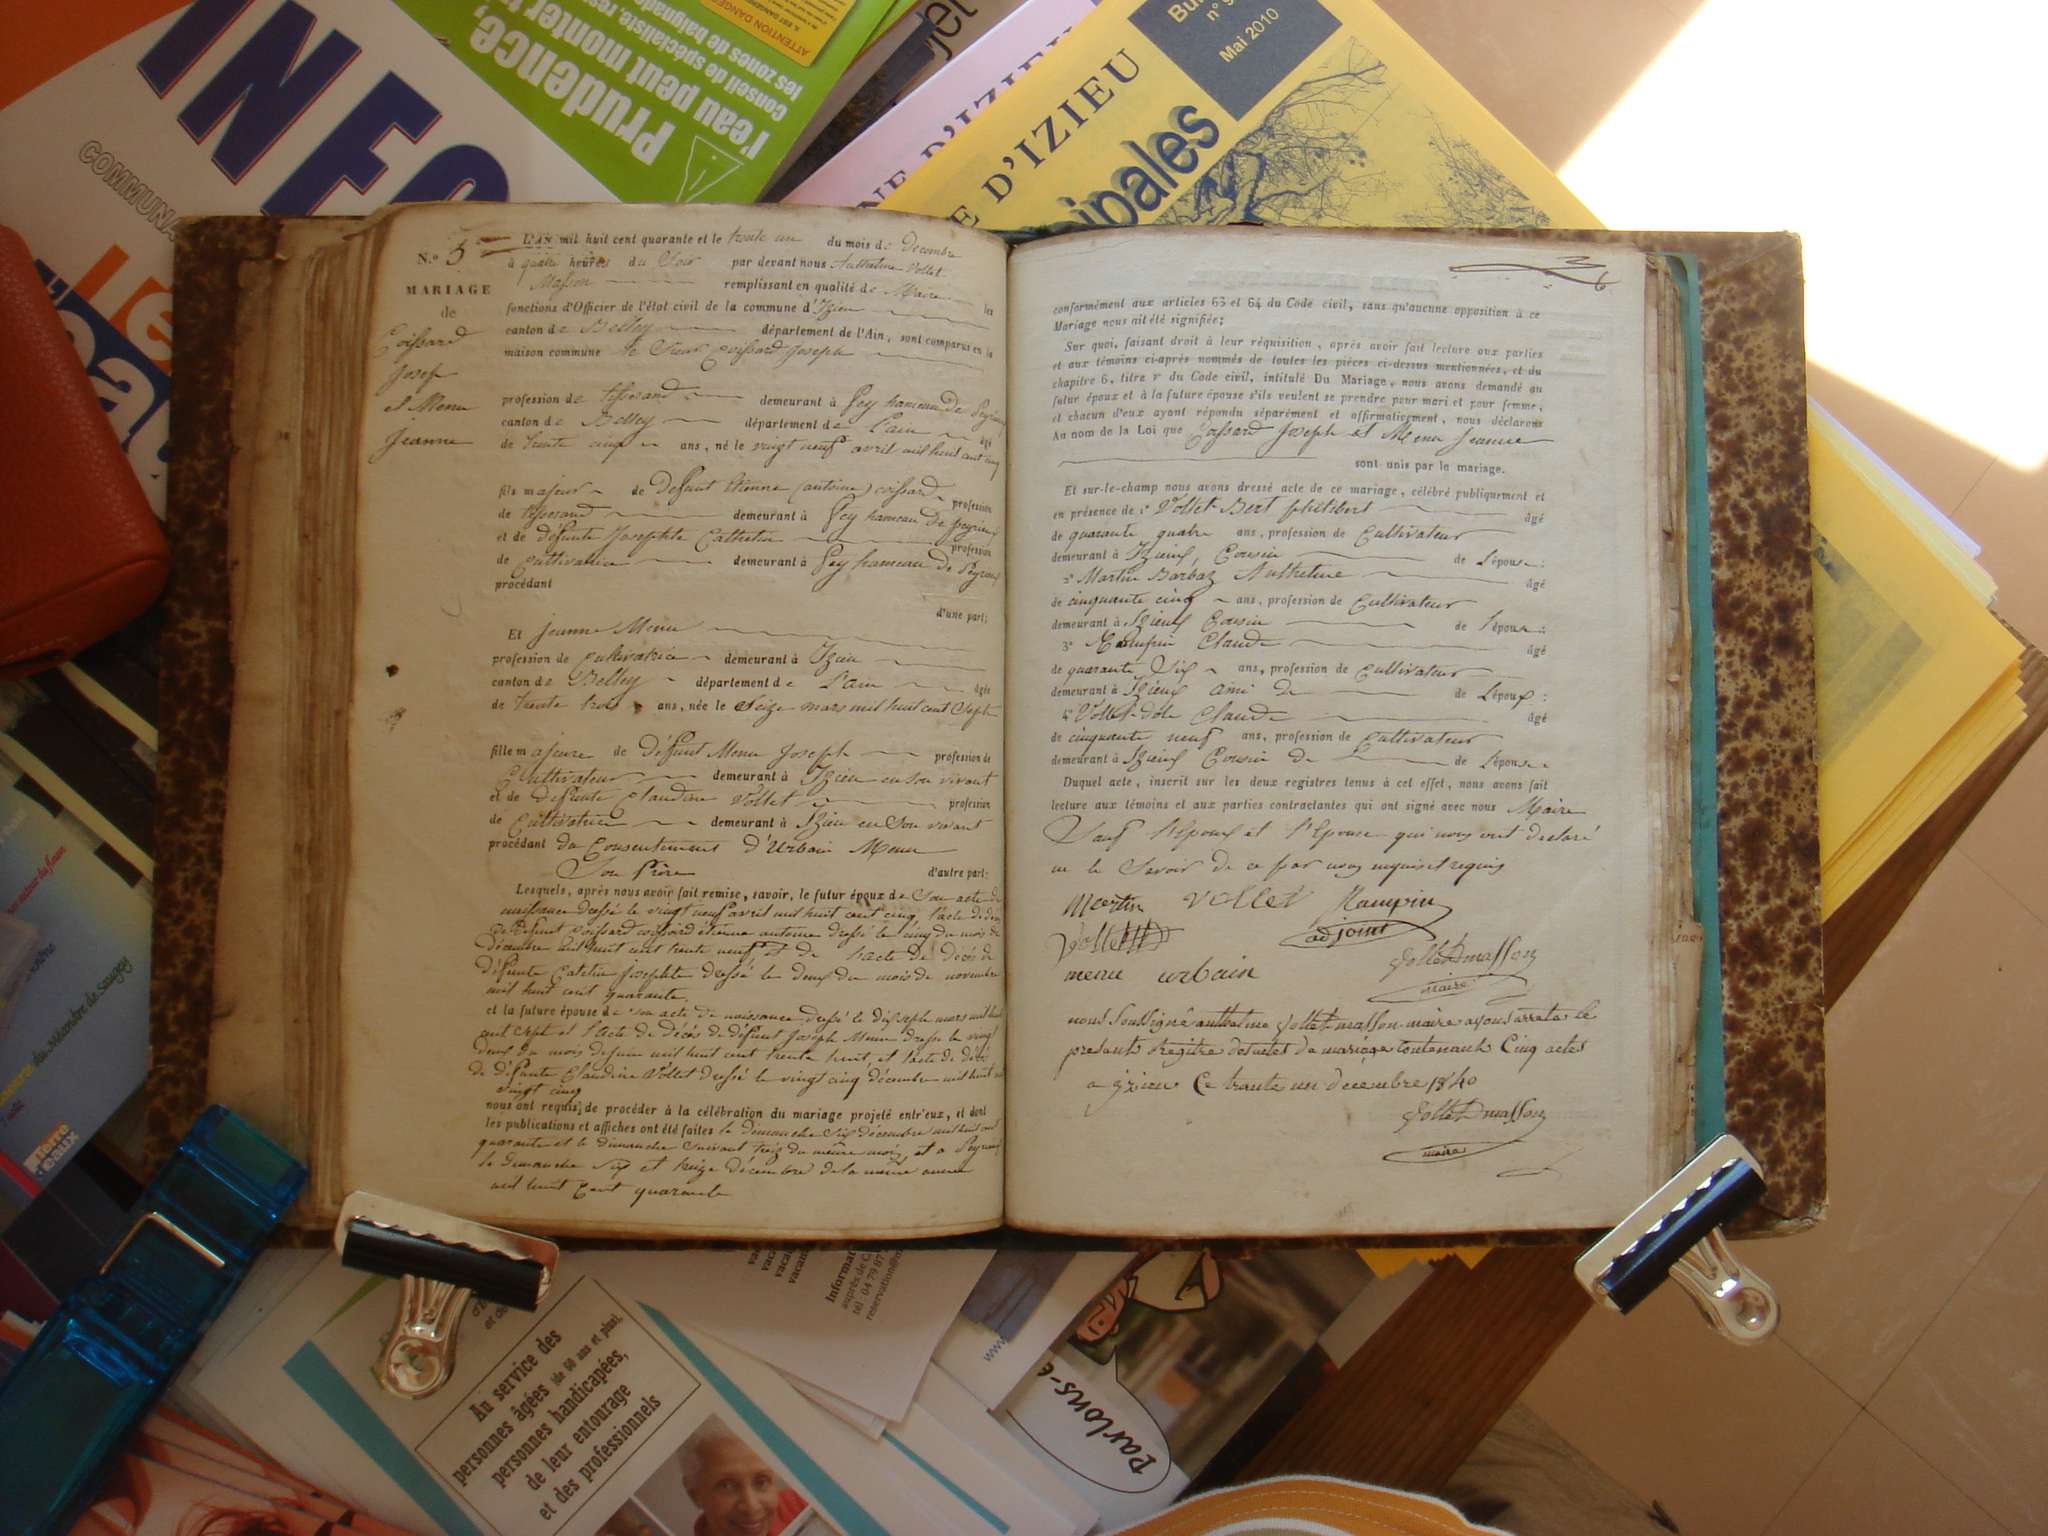 INFO
COMMUNA
Prudence,
l'eau peut monter
conseil de spécialiste,
les zones de baignade
ATTENTION DANGER
jet
NE D'IZIEU
E D'IZIEU
Bul
n° 9
Mai 2010
cipales
N.° 5
MARIAGE
de
Coissard
Josep
et Menu
Jeanne
L'AN mil huit cent quarante et le trente un du mois de Decembre
à quatre heures du Soir par devant nous Anthelme Vollet
Masson remplissant en qualité de Maire les
fonctions d'Officier de l'état civil de la commune d'Izieu
canton de Belley département de l'Ain, sont comparus en la
maison commune le Sieur Coissard Joseph
profession de tisserand demeurant à Pey hameau de Peyrieu
canton de Belley département de L'ain âgé
de trente cinq ans, né le vingt neuf avril mil huit cent cinq
fils majeur de Defunt Etienne (antoine) coissard profession
de tisserand demeurant à Pey hameau de peyrieu
et de défunte Josephte Cathelin profession
de cultivatrice demeurant à Pey hameau de Peyrieu
procédant
d'une part;
Et Jeanne Menu
profession de cultivatrice demeurant à Izieu
canton de Belley département de L'ain âgée
de trente trois ans, née le Seize mars mil huit cent Sept
fille majeure de défunt Menu Joseph profession de
Cultivateur demeurant à Izieu en son vivant
et de défunte Claudine Vollet profession
de Cultivatrice demeurant à Izieu en Son vivant
procédant du Consentement d'Urbain Menu
Son Frère d'autre part:
Lesquels, après nous avoir fait remise, savoir, le futur époux de Son acte de
naissance dressé le vingt neuf avril mil huit cent cinq, l'acte de
de défunt Coissard etienne antoine dressé le cinq du mois de
décembre mil huit cent trente neuf et de l'acte de décès de
défunte Catelin josephte dressé le deux du mois de novembre
mil huit cent quarante.
et la future épouse de son acte de naissance dressé le dix Sept mars mil huit
cent Sept et l'acte de décès de défunt Joseph Menu dressé le vingt
deux du mois de juin mil huit cent trente huit, et l'acte de décès
de défunte Claudine Vollet dressé le vingt cinq décembre mil huit cent
vingt cinq
nous ont requis de procéder à la célébration du mariage projeté entr'eux, et dont
les publications et affiches ont été faites le dimanche Six décembre mil huit cent
quarante et le dimanche suivant treize du même mois, et a Peyrieu
le dimanche Six et treize décembre de la même année
mil huit Cent quarante
6
conformément aux articles 63 et 64 du Code civil, sans qu'aucune opposition à ce
Mariage nous ait été signifiée;
Sur quoi, faisant droit à leur réquisition, après avoir fait lecture aux parties
et aux témoins ci-après nommés de toutes les pièces ci-dessus mentionnées, et du
chapitre 6, titre v du Code civil, intitulé Du Mariage, nous avons demandé au
futur époux et à la future épouse s'ils veulent se prendre pour mari et pour femme,
et chacun d'eux ayant répondu séparément et affirmativement, nous déclarons
Au nom de la Loi que Coissard Joseph et Menu Jeanne
sont unis par le mariage.
Et sur-le-champ nous avons dressé acte de ce mariage, célébré publiquement et
en présence de 1° Vollet-Bert philibert âgé
de quarante quatre ans, profession de Cultivateur
demeurant à Izieux Cousin de L'épouse;
2° Martin Barbaz Anthelme âgé
de cinquante cinq ans, profession de Cultivateur
demeurant à Izieux Cousin de l'épouse;
3° Rampin Claude âgé
de quarante Six ans, profession de Cultivateur
demeurant à Izieux ami de de L'époux;
4° Vollet-Dôle Claude âgé
de cinquante neuf ans, profession de Cultivateur
demeurant à Izieux Cousin de de L'épouse
Duquel acte, inscrit sur les deux registres tenus à cet effet, nous avons fait
lecture aux témoins et aux parties contractantes qui ont signé avec nous Maire
Sauf l'époux et l'Epouse qui nous ont declaré
ne le Savoir de ce par nous enquis et requis
Martin Vollet Rampin
adjoint
Vollet
menu urbain
Vollet masson
maire
nous Soussigné anthelme Vollet-masson maire avons arreté le
present Regitre des actes de mariage contenant Cinq actes
a jzieu Ce trante un decembre 1840
Vollet masson
maire
Terre
d'eaux
Au service des
personnes âgées (de 60 ans et plus),
personnes handicapées,
de leur entourage
et des professionnels
Informat
auprès de C
tél : 04 79 87
reservation@
www
Parlons-e